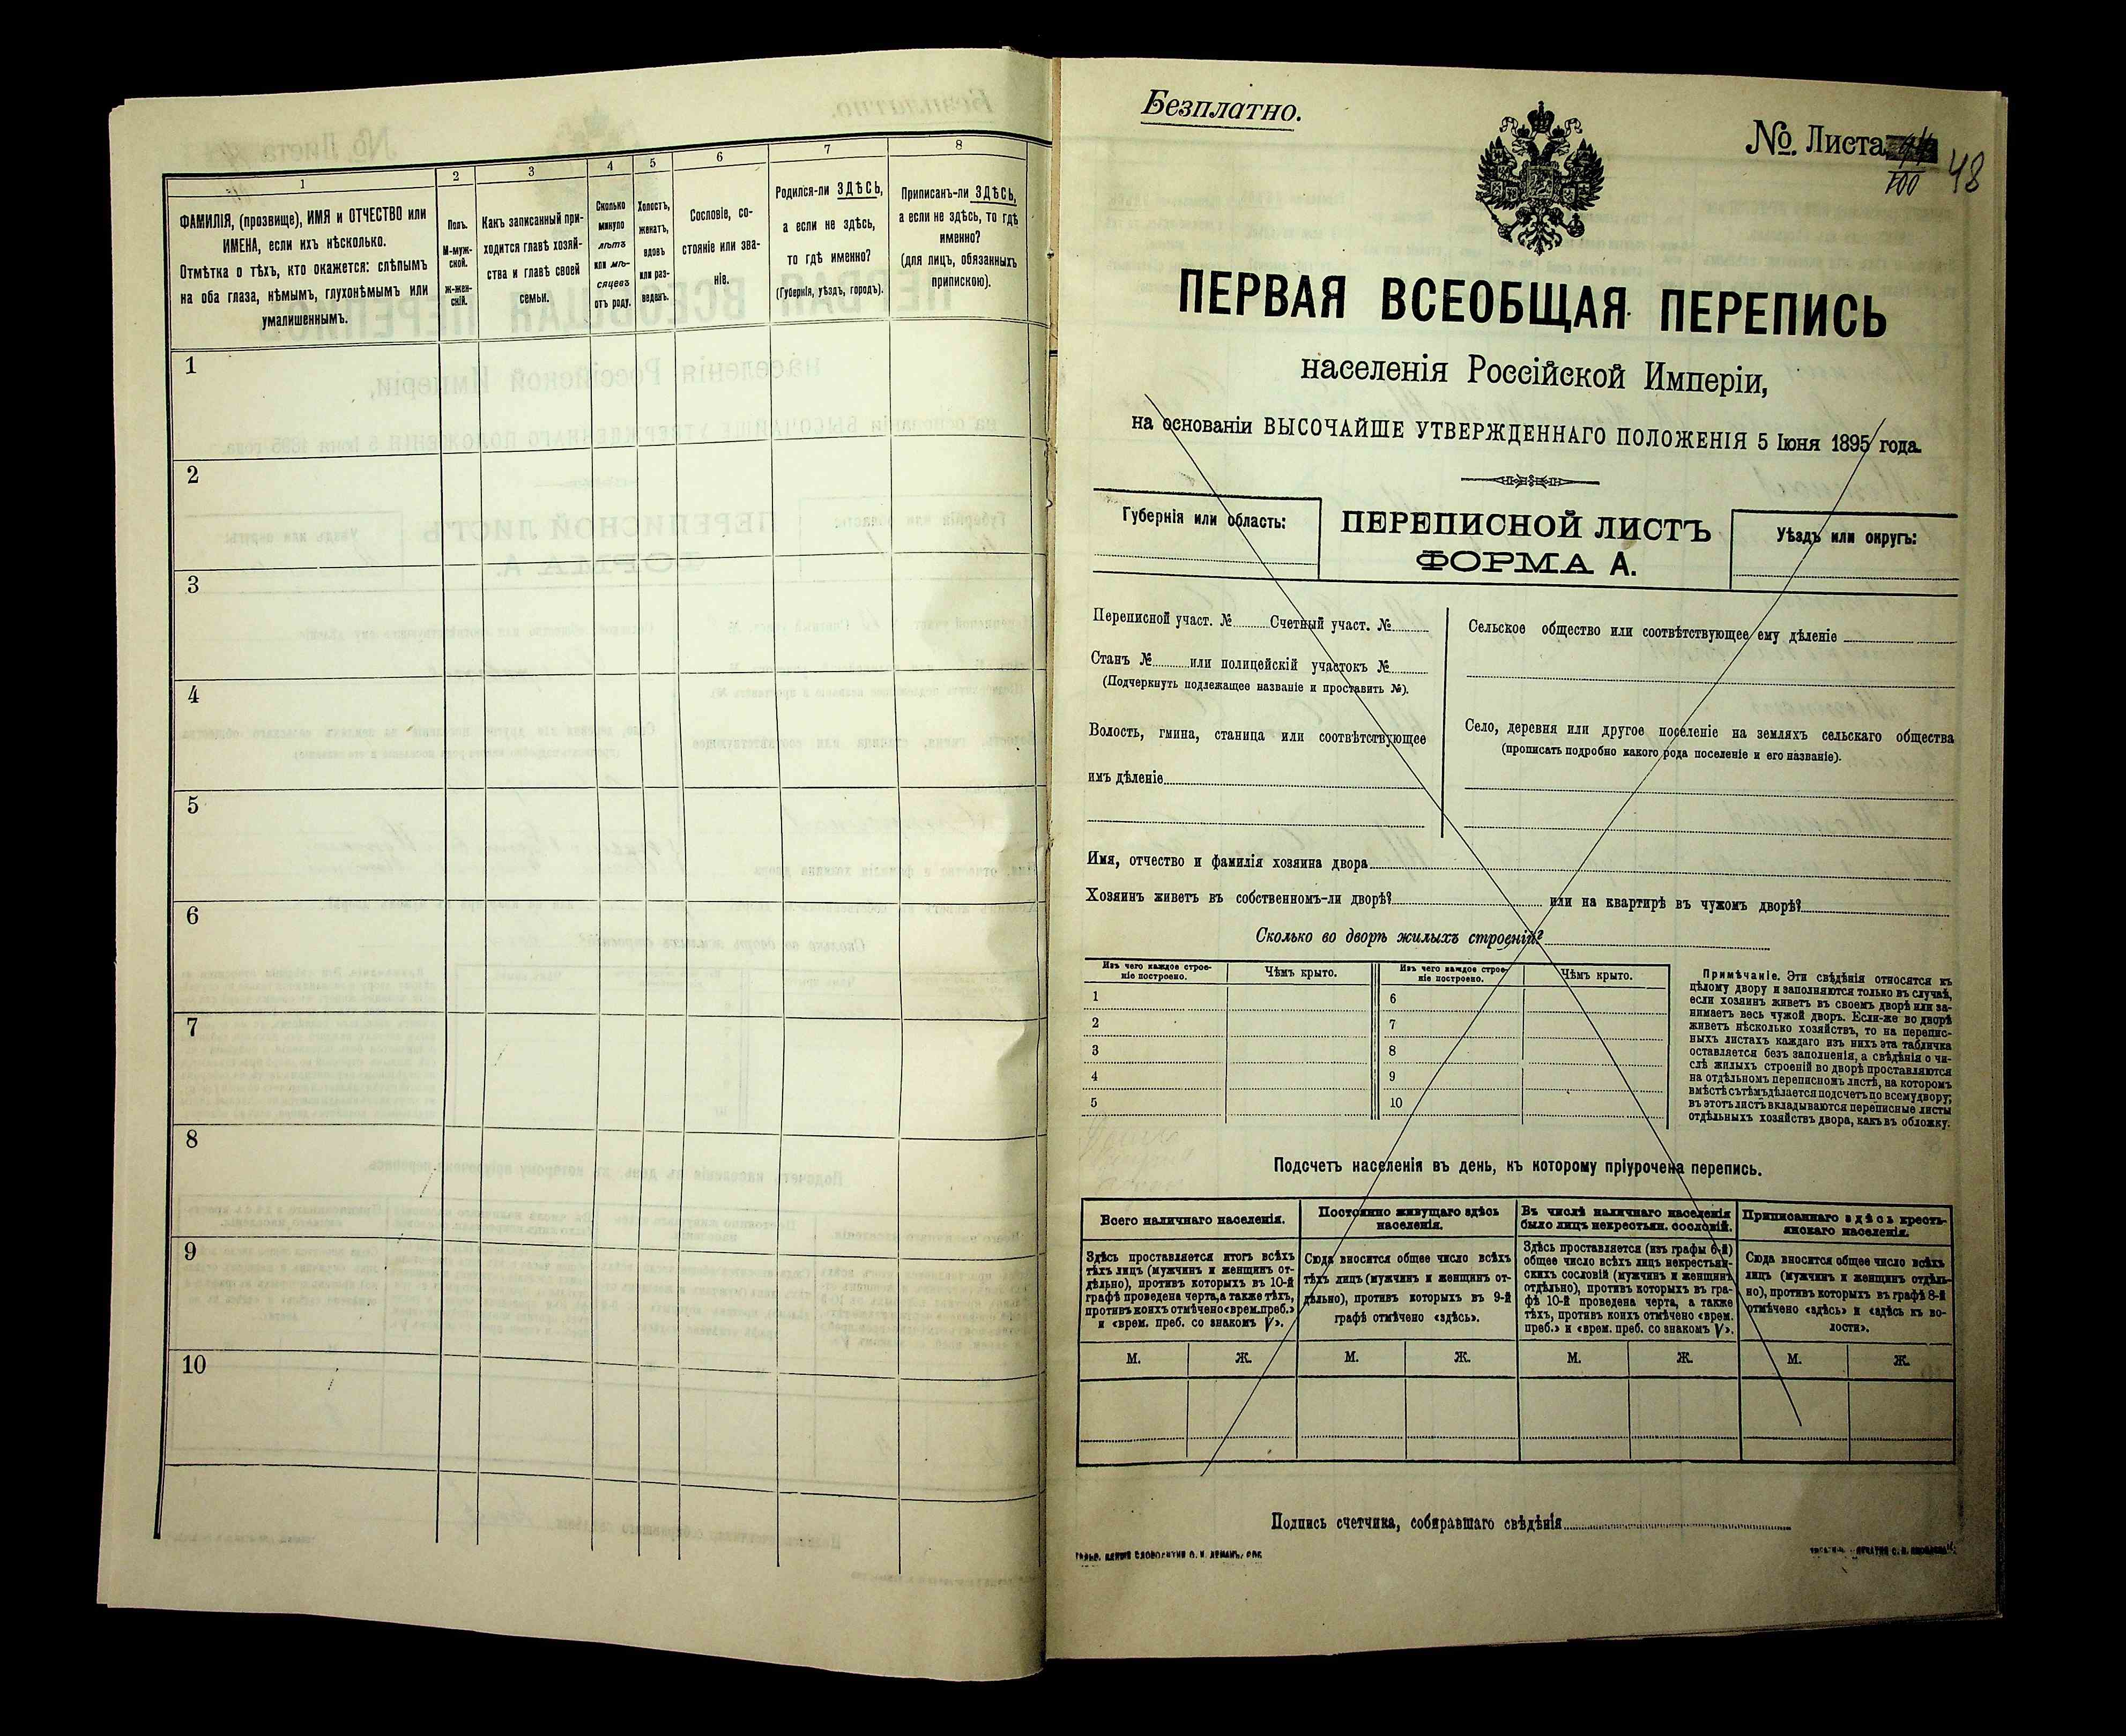 1
2
3
4
5
6
7
8
ФАМИЛІЯ, (прозвище), ИМЯ и ОТЧЕСТВО или
ИМЕНА, если ихъ нѣсколько.
Отмѣтка о тѣхъ, кто окажется: слѣпымъ
на оба глаза, нѣмымъ, глухонѣмымъ или
умалишеннымъ.
Полъ.
М-муж-
ской.
Ж-жен-
скій.
Какъ записанный при-
ходится главѣ хозяй-
ства и главѣ своей
семьи.
Сколько
минуло
лѣтъ
или мѣ-
сяцевъ
отъ роду.
Холостъ,
женатъ,
вдовъ
или раз-
веденъ.
Сословіе, со-
стояніе или зва-
ніе.
Родился-ли ЗДѢСЬ,
а если не здѣсь,
то гдѣ именно?
(Губернія, уѣздъ, городъ).
Приписанъ-ли ЗДѢСЬ,
а если не здѣсь, то гдѣ
именно?
(для лицъ, обязанныхъ
припискою).
1
2
3
4
5
6
7
8
9
10
Безплатно.
№. Листа
100
48
ПЕРВАЯ ВСЕОБЩАЯ ПЕРЕПИСЬ
населенія Россійской Имперіи,
на основаніи ВЫСОЧАЙШЕ УТВЕРЖДЕННАГО ПОЛОЖЕНІЯ 5 Іюня 1895 года.
Губернія или область:
ПЕРЕПИСНОЙ ЛИСТЪ
ФОРМА А.
Уѣздъ или округъ:
Переписной участ. № Счетный участ. №
Станъ № или полицейскій участокъ №
(Подчеркнуть подлежащее названіе и проставить №).
Волость, гмина, станица или соотвѣтствующее
имъ дѣленіе
Сельское общество или соотвѣтствующее ему дѣленіе
Село, деревня или другое поселеніе на земляхъ сельскаго общества
(прописать подробно какого рода поселеніе и его названіе).
Имя, отчество и фамилія хозяина двора
Хозяинъ живетъ въ собственномъ-ли дворѣ? или на квартирѣ въ чужомъ дворѣ?
Сколько во дворѣ жилыхъ строеній?
Изъ чего каждое строе-
ніе построено.
Чѣмъ крыто.
Изъ чего каждое строе-
ніе построено.
Чѣмъ крыто.
1
2
3
4
5
6
7
8
9
10
Примѣчаніе. Эти свѣдѣнія относятся къ
цѣлому двору и заполняются только въ случаѣ,
если хозяинъ живетъ въ своемъ дворѣ или за-
нимаетъ весь чужой дворъ. Если-же во дворѣ
живетъ нѣсколько хозяйствъ, то на перепис-
ныхъ листахъ каждаго изъ нихъ эта табличка
оставляется безъ заполненія, а свѣдѣнія о чи-
слѣ жилыхъ строеній во дворѣ проставляются
на отдѣльномъ переписномъ листѣ, на которомъ
вмѣстѣ съ тѣмъ дѣлается подсчетъ по всему двору;
въ этотъ листъ вкладываются переписные листы
отдѣльныхъ хозяйствъ двора, какъ въ обложку.
Подсчетъ населенія въ день, къ которому пріурочена перепись.
Всего наличнаго населенія.
Постоянно живущаго здѣсь
населенія.
Въ числѣ наличнаго населенія
было лицъ некрестьян. сословій.
Приписаннаго здѣсь кресть-
янскаго населенія.
Здѣсь проставляется итогъ всѣхъ
тѣхъ лицъ (мужчинъ и женщинъ от-
дѣльно), противъ которыхъ въ 10-й
графѣ проведена черта, а также тѣхъ,
противъ коихъ отмѣчено «врем. преб.»
и «врем. преб. со знакомъ V».
Сюда вносится общее число всѣхъ
тѣхъ лицъ (мужчинъ и женщинъ от-
дѣльно), противъ которыхъ въ 9-й
графѣ отмѣчено «здѣсь».
Здѣсь проставляется (изъ графы 6-й)
общее число всѣхъ лицъ некрестьян-
скихъ сословій (мужчинъ и женщинъ
отдѣльно), противъ которыхъ въ гра-
фѣ 10-й проведена черта, а также
тѣхъ, противъ коихъ отмѣчено «врем.
преб.» и «врем. преб. со знакомъ V».
Сюда вносится общее число всѣхъ
лицъ (мужчинъ и женщинъ отдѣль-
но), противъ которыхъ въ графѣ 8-й
отмѣчено «здѣсь» и «здѣсь къ во-
лости».
М.
Ж.
М.
Ж.
М.
Ж.
М.
Ж.
Подпись счетчика, собиравшаго свѣдѣнія